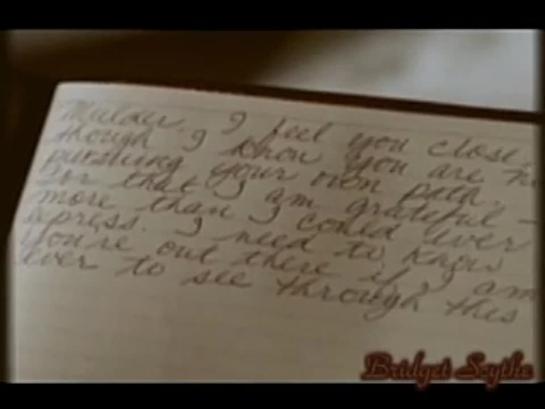 Mulder, I feel you close
though I know you are n
pursuing your own path.
For that I am grateful -
more than I could ever
express. I need to know
you're out there if I am
ever to see through this
Bridget Scythe